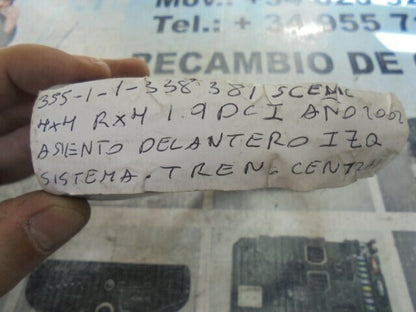 Tel.: + 34 955 7
RECAMBIO DE
355-1-1-338381 SCENIC
4x4 RX4 1.9 DCI AÑO 2002
ASIENTO DELANTERO IZQ
SISTEMA. TREN. CENTRAL